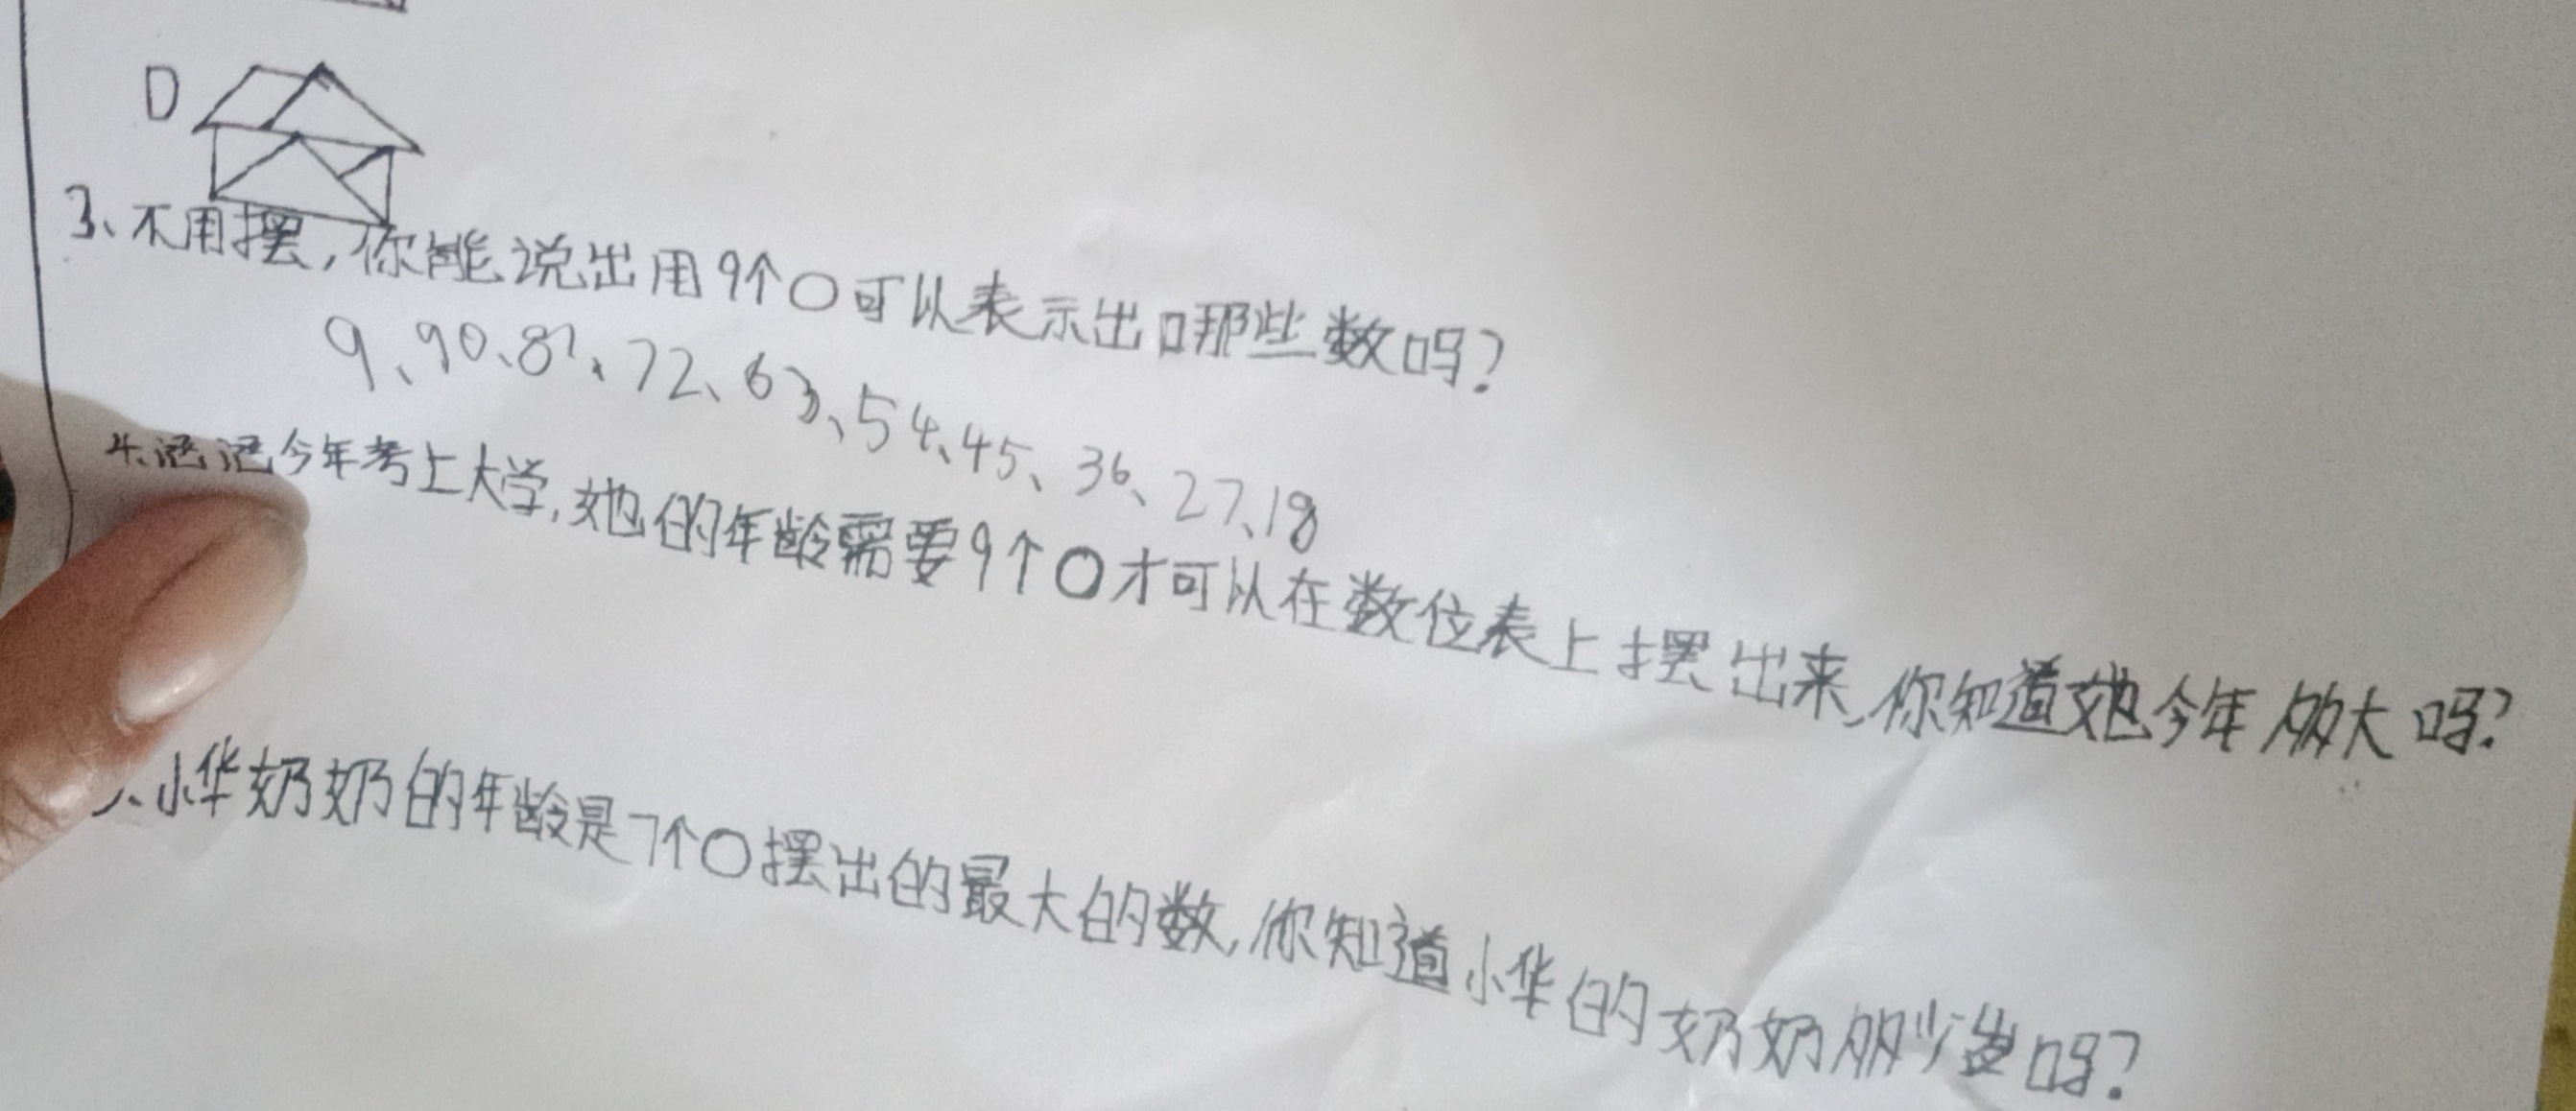 D
3、不用摆,你能说出用9个○可以表示出哪些数吗?
9、90、81、72、63、54、45、36、27、18
4.涵涵今年考上大学,她的年龄需要9个○才可以在数位表上摆出来,你知道她今年多大吗?
、小华奶奶的年龄是7个○摆出的最大的数,你知道小华的奶奶多少岁吗?